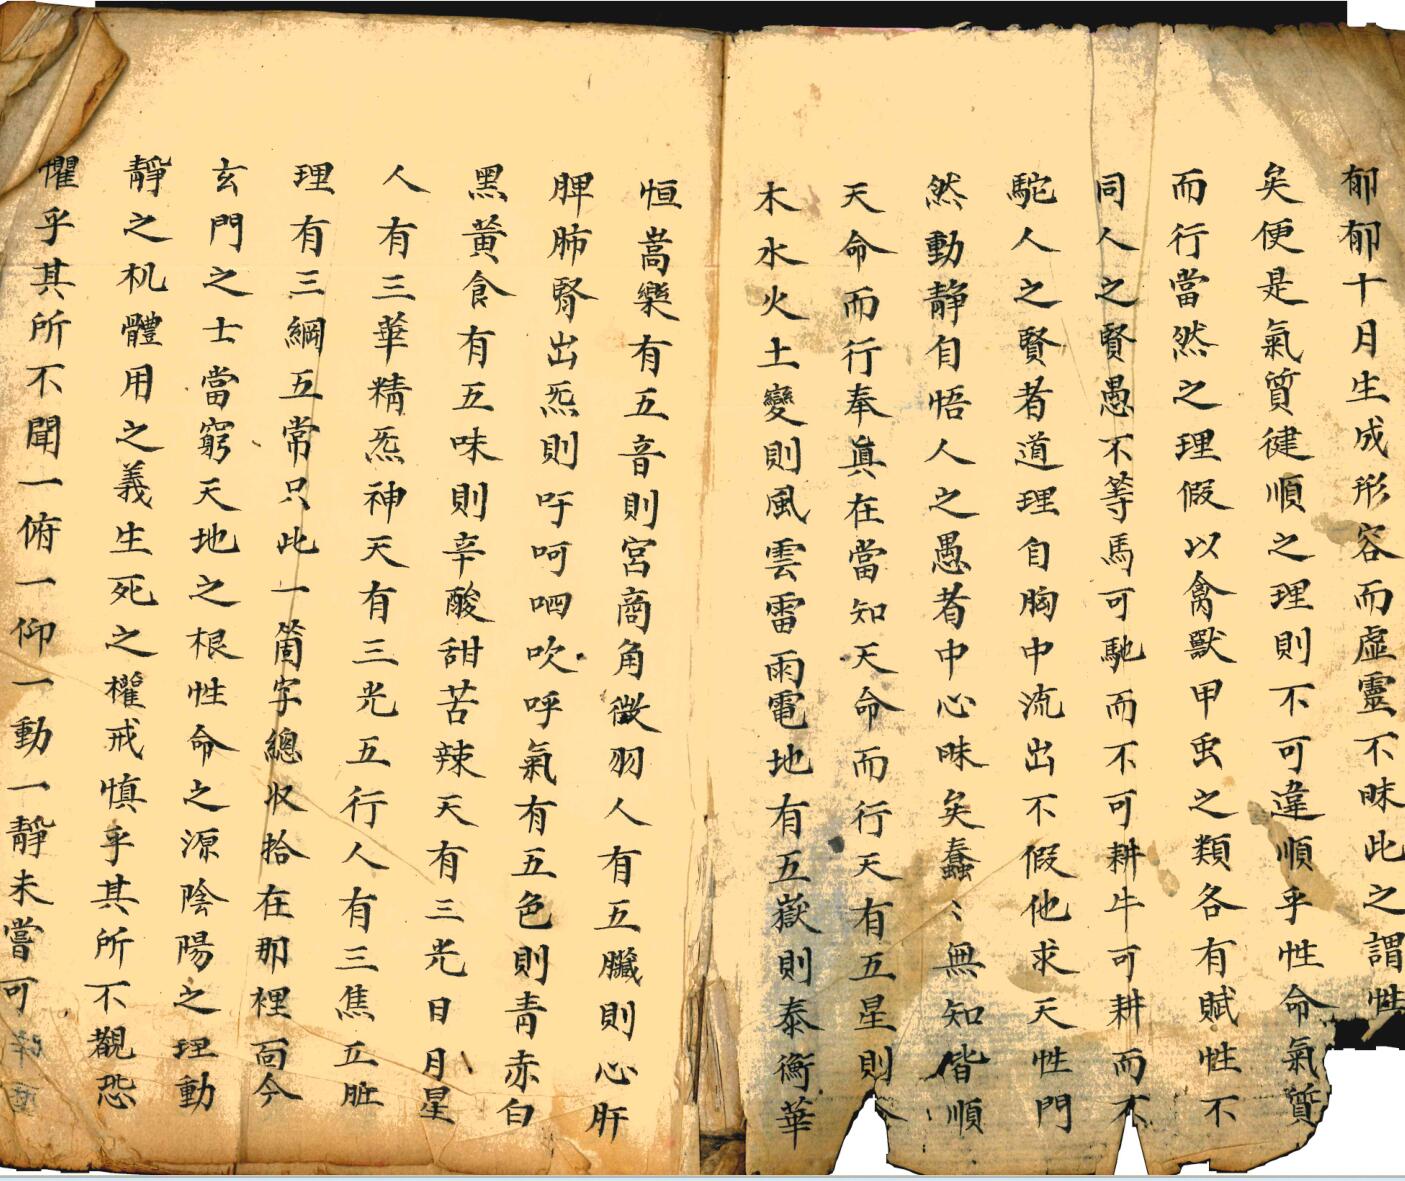 郁郁十月生成形容而虛靈不昧此之謂性
矣便是氣質健順之理則不可違順乎性命氣質
而行當然之理假以禽獸甲虫之類各有賦性不
同人之賢愚不等馬可馳而不可耕牛可耕而不
駝人之賢者道理自胸中流出不假他求天性門
然動静自悟人之愚者中心昧矣蠢〻無知偕順
天命而行奉眞在當知天命而行天有五星則
木水火土變則風雲雷雨電地有五嶽則泰衡華
恒嵩樂有五音則宮商角徵羽人有五臟則心肝
脾肺腎出炁則吁呵呬吹呼氣有五色則青赤白
黑黃食有五味則辛酸甜苦辣天有三光日月星
人有三華精炁神天有三光五行人有三焦五脏
理有三綱五常只此一箇字總收拾在那裡面今
玄門之士當窮天地之根性命之源陰陽之理動
靜之机體用之義生死之權戒慎乎其所不觀恐
懼乎其所不聞一俯一仰一動一靜未嘗可